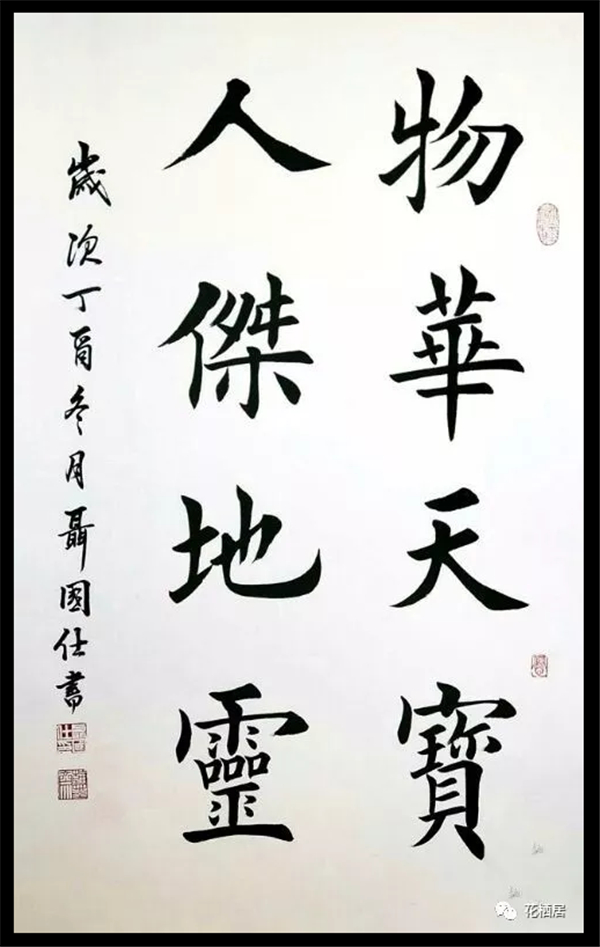 物華天寶
人傑地靈
歲次丁酉冬月聶國仕書
花栖居